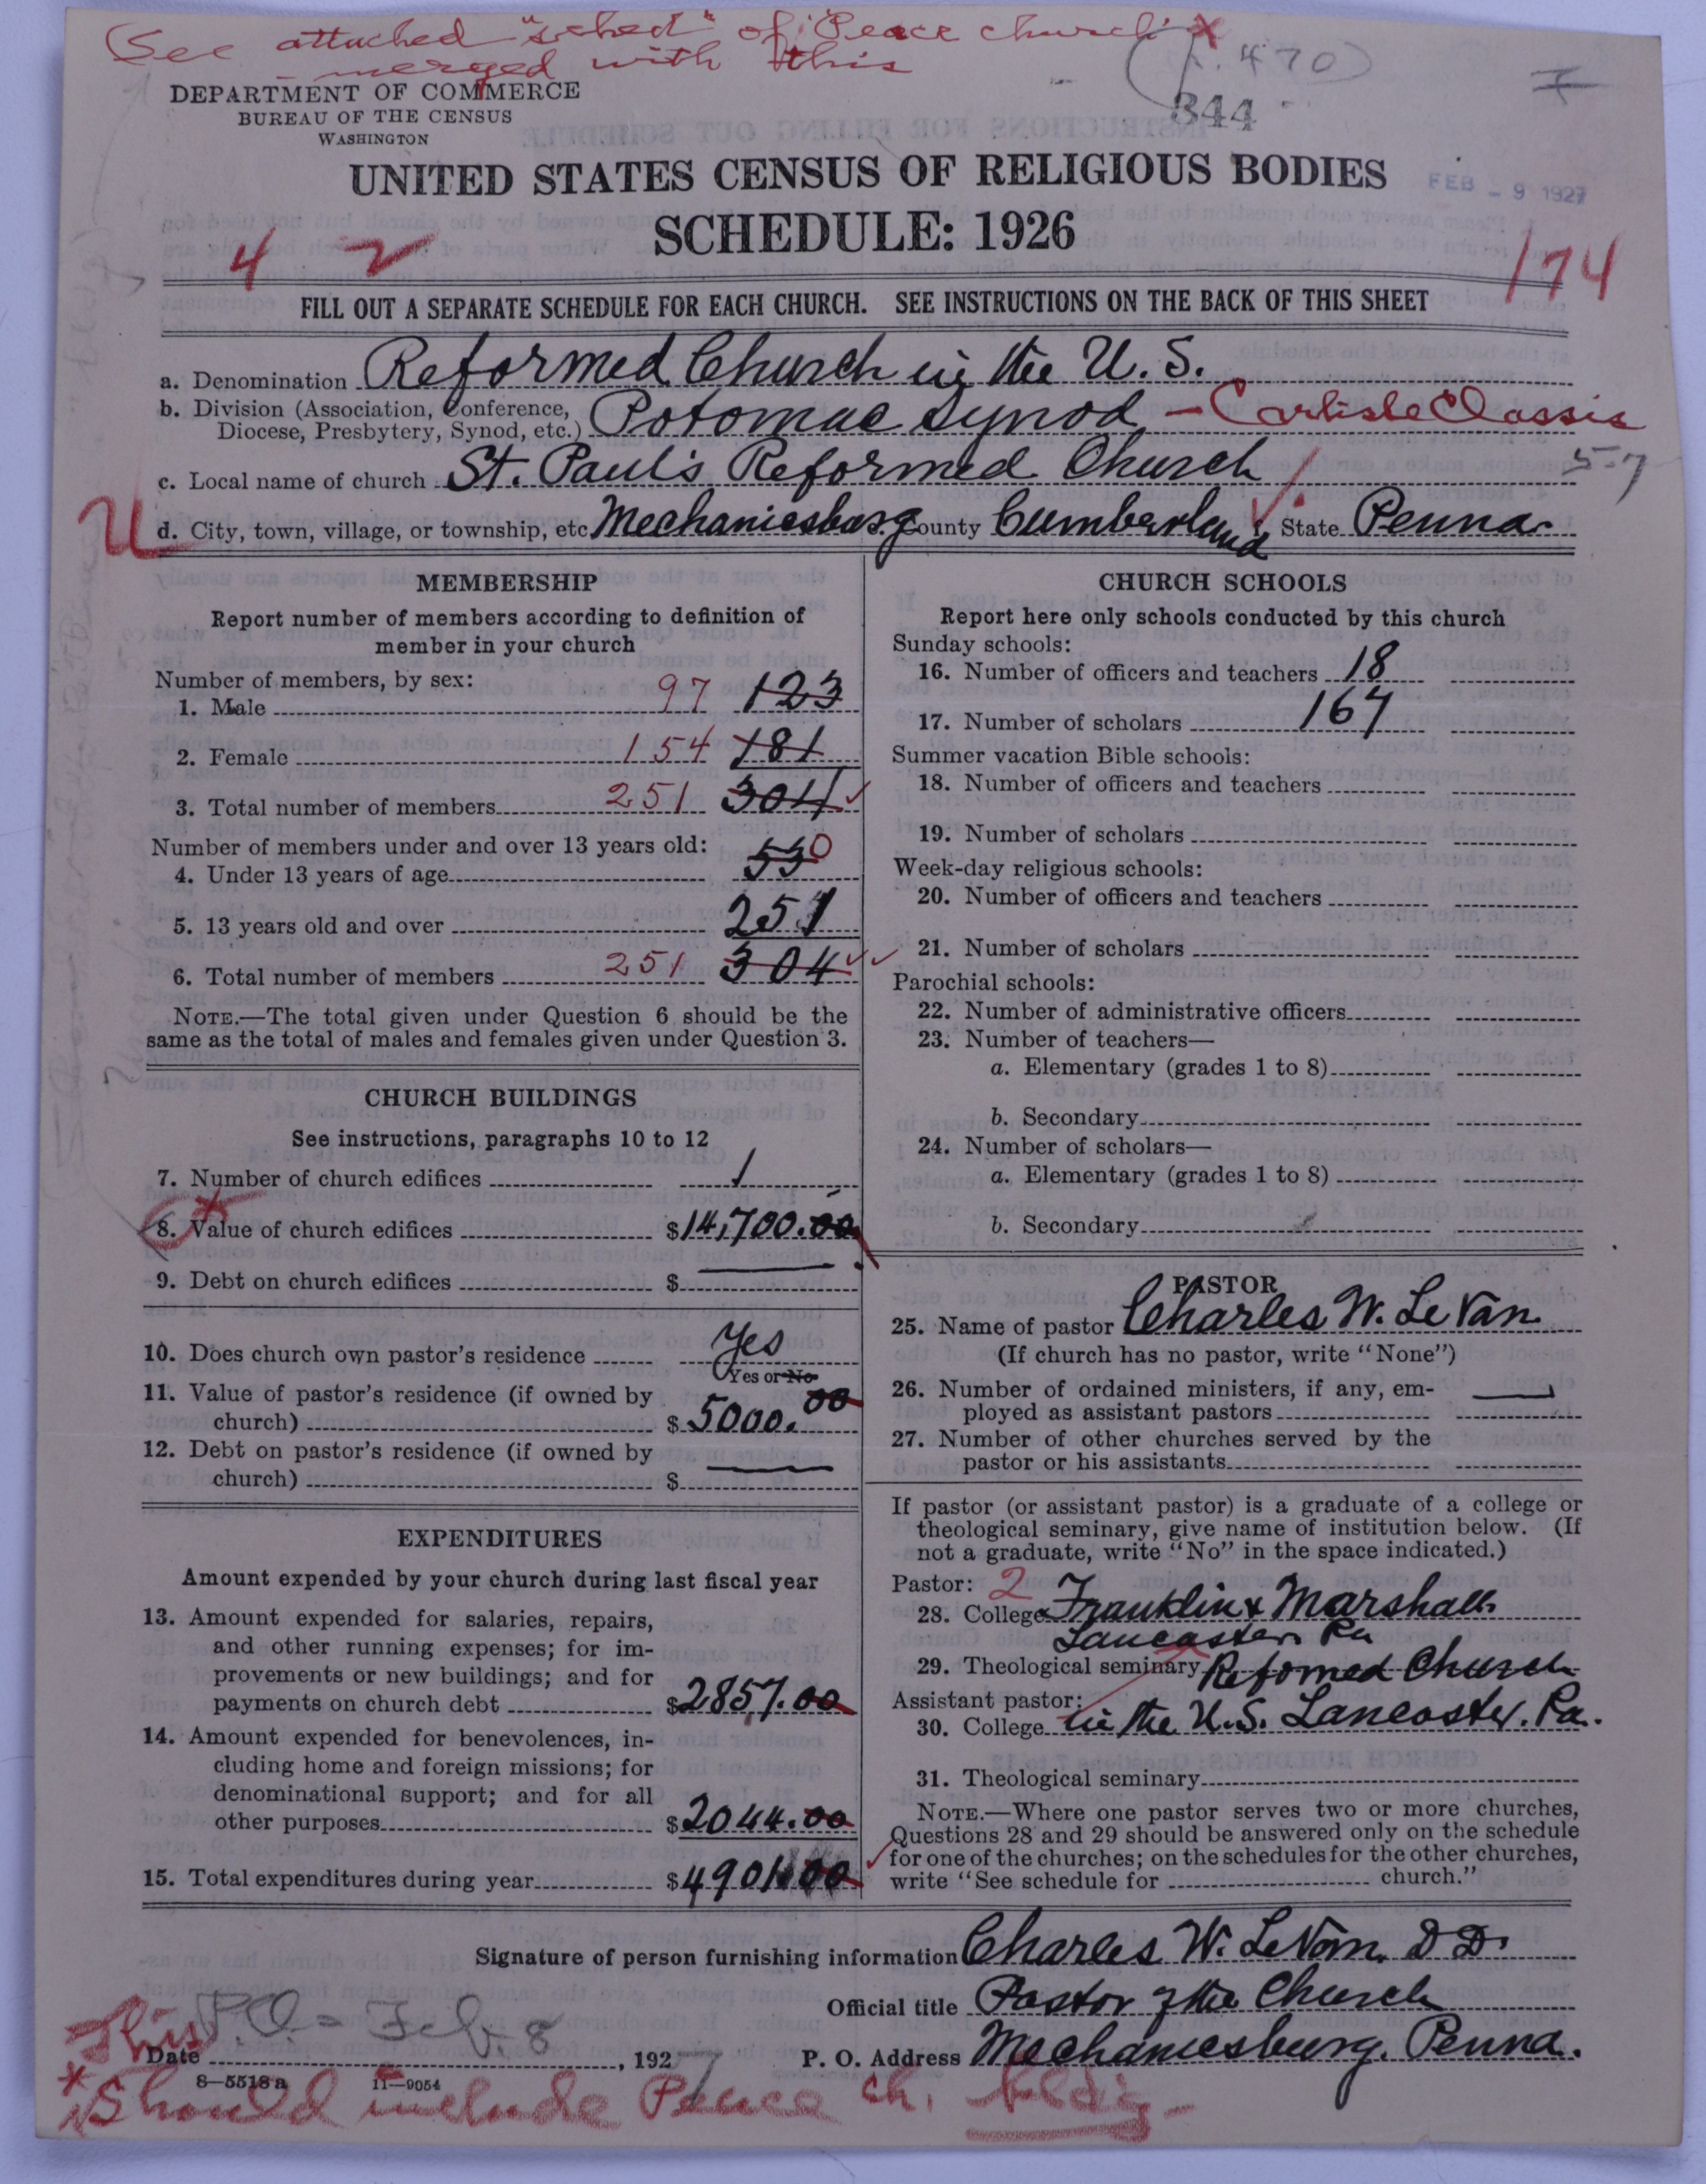 See attached "sched" of Peace church x
merged with this
(P. 470)
344
DEPARTMENT OF COMMERCE
BUREAU OF THE CENSUS
WASHINGTON
UNITED STATES CENSUS OF RELIGIOUS BODIES
FEB - 9 1927
SCHEDULE: 1926
4 2
174
FILL OUT A SEPARATE SCHEDULE FOR EACH CHURCH. SEE INSTRUCTIONS ON THE BACK OF THIS SHEET
a. Denomination Reformed Church in the U. S.
b. Division (Association, Conference, Diocese, Presbytery, Synod, etc.) Potomac Synod - Carlisle Classis
c. Local name of church St. Paul's Reformed Church 5-7
U d. City, town, village, or township, etc Mechanicsburg County Cumberland; State Penna.
MEMBERSHIP
Report number of members according to definition of
member in your church
Number of members, by sex:
1. Male 97 123
2. Female 154 181
3. Total number of members 251 304
Number of members under and over 13 years old:
4. Under 13 years of age 53 0
5. 13 years old and over 251
6. Total number of members 251 304
NOTE.—The total given under Question 6 should be the
same as the total of males and females given under Question 3.
CHURCH BUILDINGS
See instructions, paragraphs 10 to 12
7. Number of church edifices 1
8. Value of church edifices $14,700.00
9. Debt on church edifices $
10. Does church own pastor's residence Yes
Yes or No
11. Value of pastor's residence (if owned by
church) $5000.00
12. Debt on pastor's residence (if owned by
church) $
EXPENDITURES
Amount expended by your church during last fiscal year
13. Amount expended for salaries, repairs,
and other running expenses; for im-
provements or new buildings; and for
payments on church debt $2857.00
14. Amount expended for benevolences, in-
cluding home and foreign missions; for
denominational support; and for all
other purposes $2044.00
15. Total expenditures during year $4901.00
CHURCH SCHOOLS
Report here only schools conducted by this church
Sunday schools:
16. Number of officers and teachers 18
17. Number of scholars 167
Summer vacation Bible schools:
18. Number of officers and teachers
19. Number of scholars
Week-day religious schools:
20. Number of officers and teachers
21. Number of scholars
Parochial schools:
22. Number of administrative officers
23. Number of teachers—
a. Elementary (grades 1 to 8)
b. Secondary
24. Number of scholars—
a. Elementary (grades 1 to 8)
b. Secondary
PASTOR
25. Name of pastor Charles W. LeVan
(If church has no pastor, write "None")
26. Number of ordained ministers, if any, em-
ployed as assistant pastors
27. Number of other churches served by the
pastor or his assistants
If pastor (or assistant pastor) is a graduate of a college or
theological seminary, give name of institution below. (If
not a graduate, write "No" in the space indicated.)
Pastor: 2
28. College Franklin & Marshall
Lancaster Pa
29. Theological seminary Refomed Church
Assistant pastor:
30. College in the U.S. Lancaster. Pa.
31. Theological seminary
NOTE.—Where one pastor serves two or more churches,
Questions 28 and 29 should be answered only on the schedule
for one of the churches; on the schedules for the other churches,
write "See schedule for church."
Signature of person furnishing information Charles W. LeVan, D D.
Official title Pastor of the Church
P.O. = Feb. 8
Date , 1927
P. O. Address Mechanicsburg, Penna.
8—5518a 11—9054
* This Should include Peace ch. bldg -